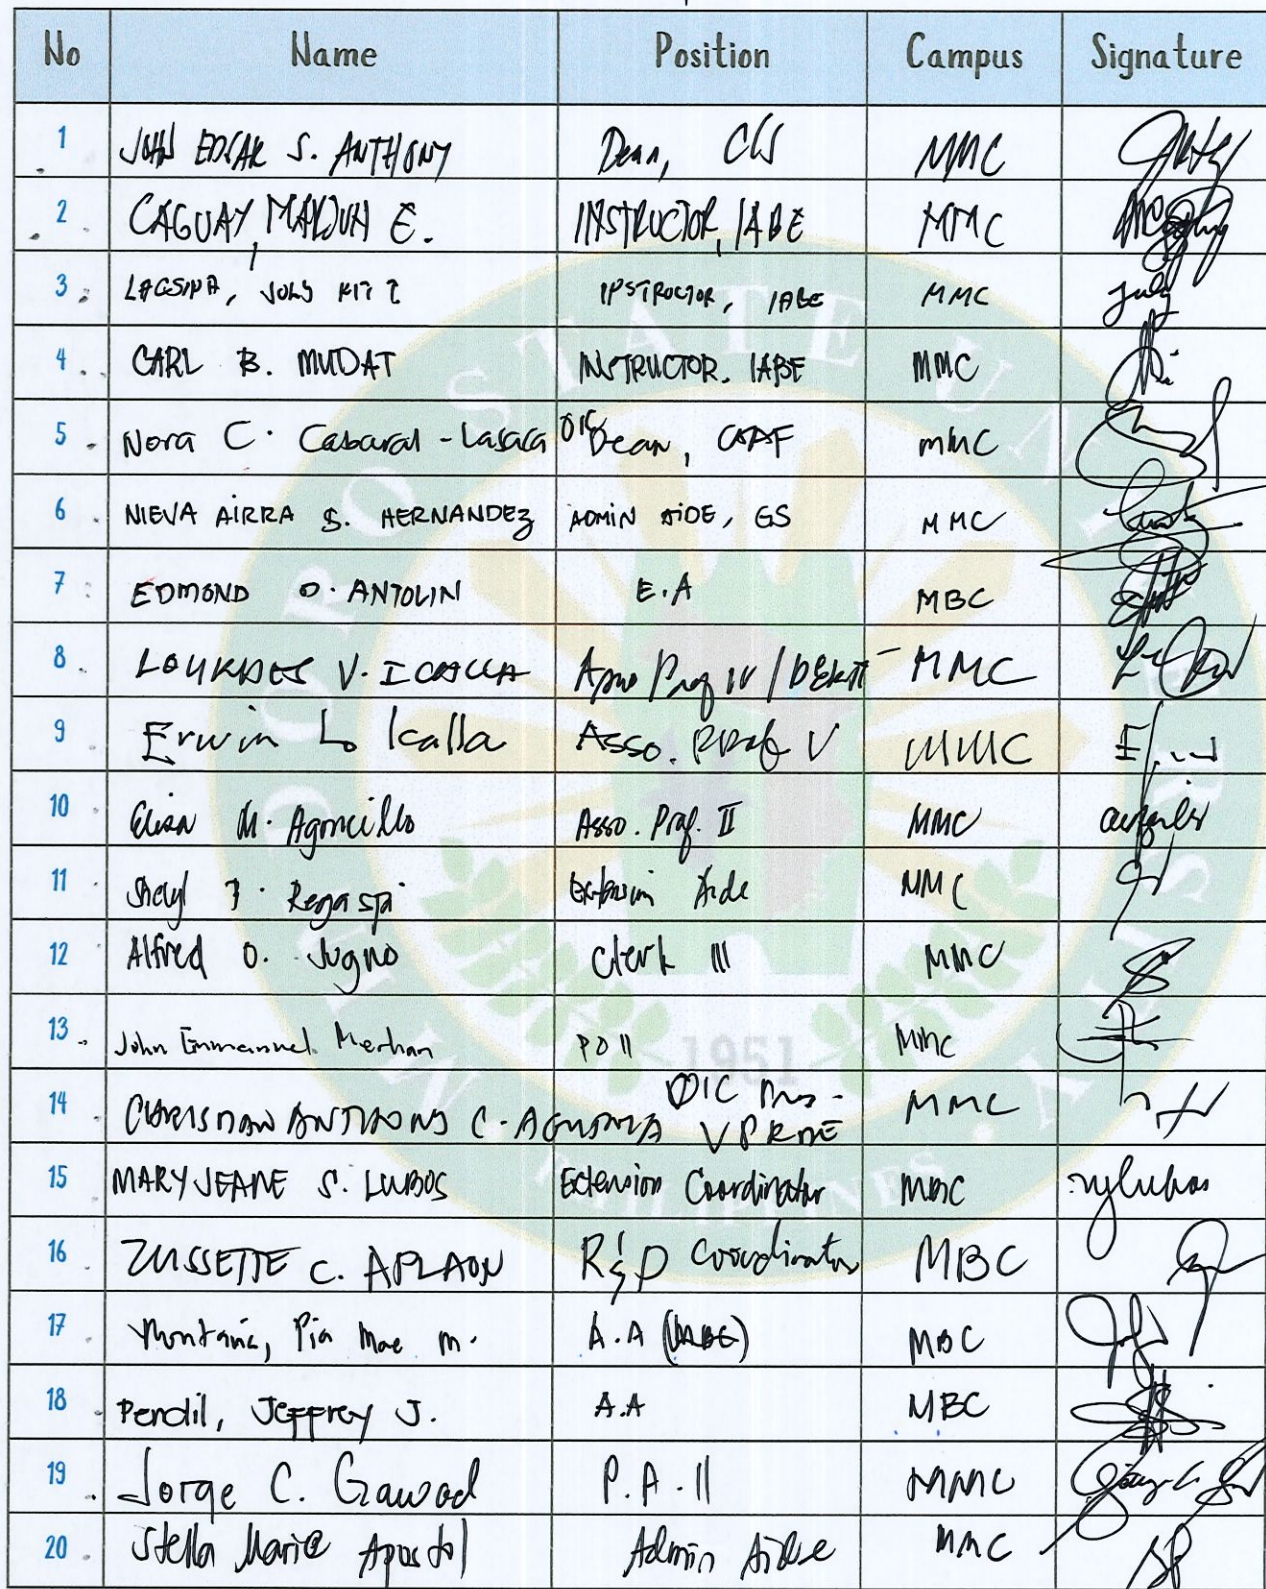 No Name Position Campus Signature
1 JOHN EDGAR S. ANTHONY Dean, MMC
2 CAGUAY, MARJUN E. INSTRUCTOR, IABE MMC
3 INSTRUCTOR, IABE MMC
4 CARL B. MUDAT INSTRUCTOR. IABE MMC
5 Nora C. Cabaral - Lasaca OIC Dean, MMC
6 NIEVA AIRRA S. HERNANDEZ ADMIN AIDE, GS MMC
7 EDMOND O. ANTOLIN E.A MBC
8 LOURDES V. ICALLA MMC
9 Erwin L. Icalla Asso. Prof V MMC
10 Elisa M. Agoncillo Asso. Prof. II MMC
11 Regaspi Extension Aide MMC
12 Alfred O. Jugno Clerk III MMC
13 John Emmanuel Merhan PD II MMC
14 OIC MMC
C. VPRDE
15 MARY JEANE S. LUBOS Extension Coordinator MBC
16 ZUSSETTE C. APLAON R&D Coordinator MBC
17 Pia Mae M. A.A (IABE) MBC
18 Pendil, Jeffrey J. A.A MBC
19 Jorge C. Gawad P.A. II MMC
20 Stella Marie Apostol Admin Aide MMC
MINDORO STATE UNIVERSITY
1951
PHILIPPINES